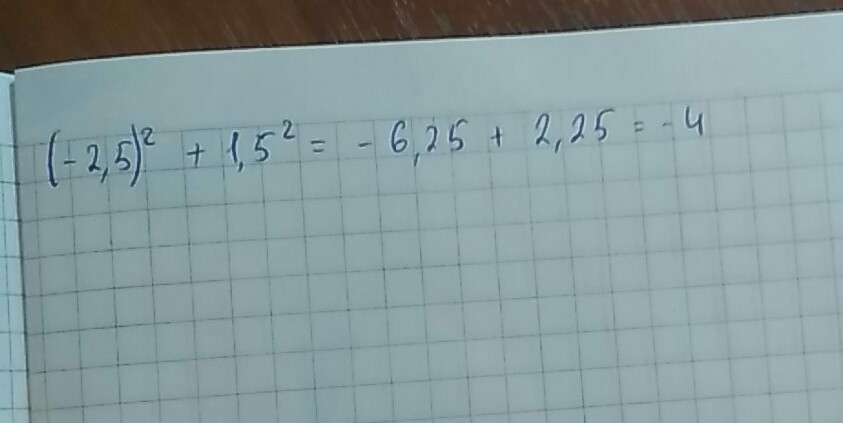 (-2,5)² + 1,5² = - 6,25 + 2,25 = - 4